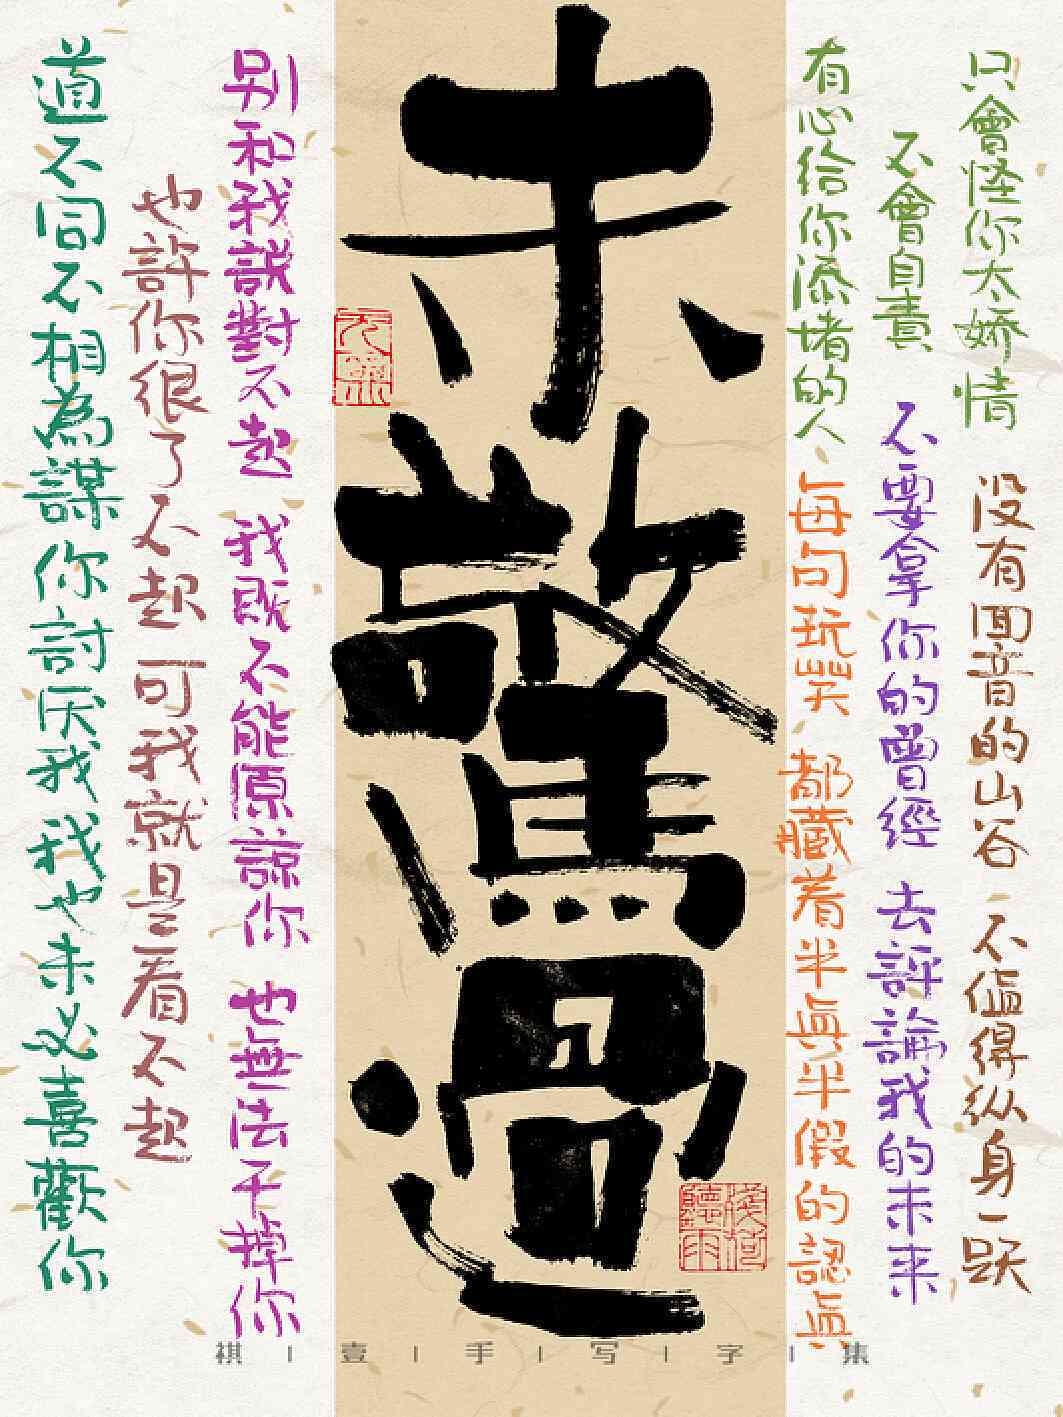 只會怪你太娇情 没有回音的山谷 不值得纵身一跃
不會自責 不要拿你的曾經 去評論我的未来
有心给你添堵的人 每句玩笑 都藏着半眞半假的認眞
未驚過
淺荷聽雨
别和我説對不起 我既不能原諒你 也無法干掉你
也許你很了不起 可我就是看不起
道不同不相為謀 你討厌我我也未必喜歡你
祺|壹|手|写|字|集